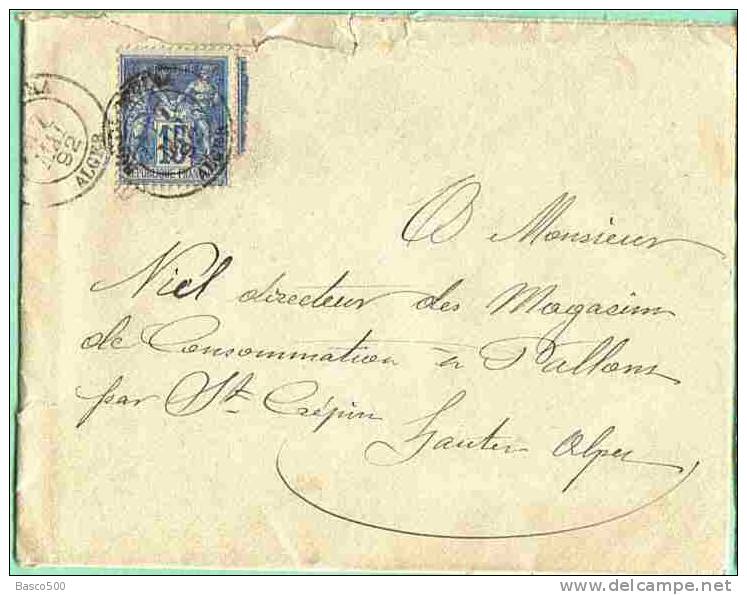 ALGER
82
15
REPUBLIQUE FRANC
ALGER
A Monsieur
Niel directeur des Magasins
de Consommation à Pallons
par St. Crépin Hautes Alpes
Basco500
delcampe.net